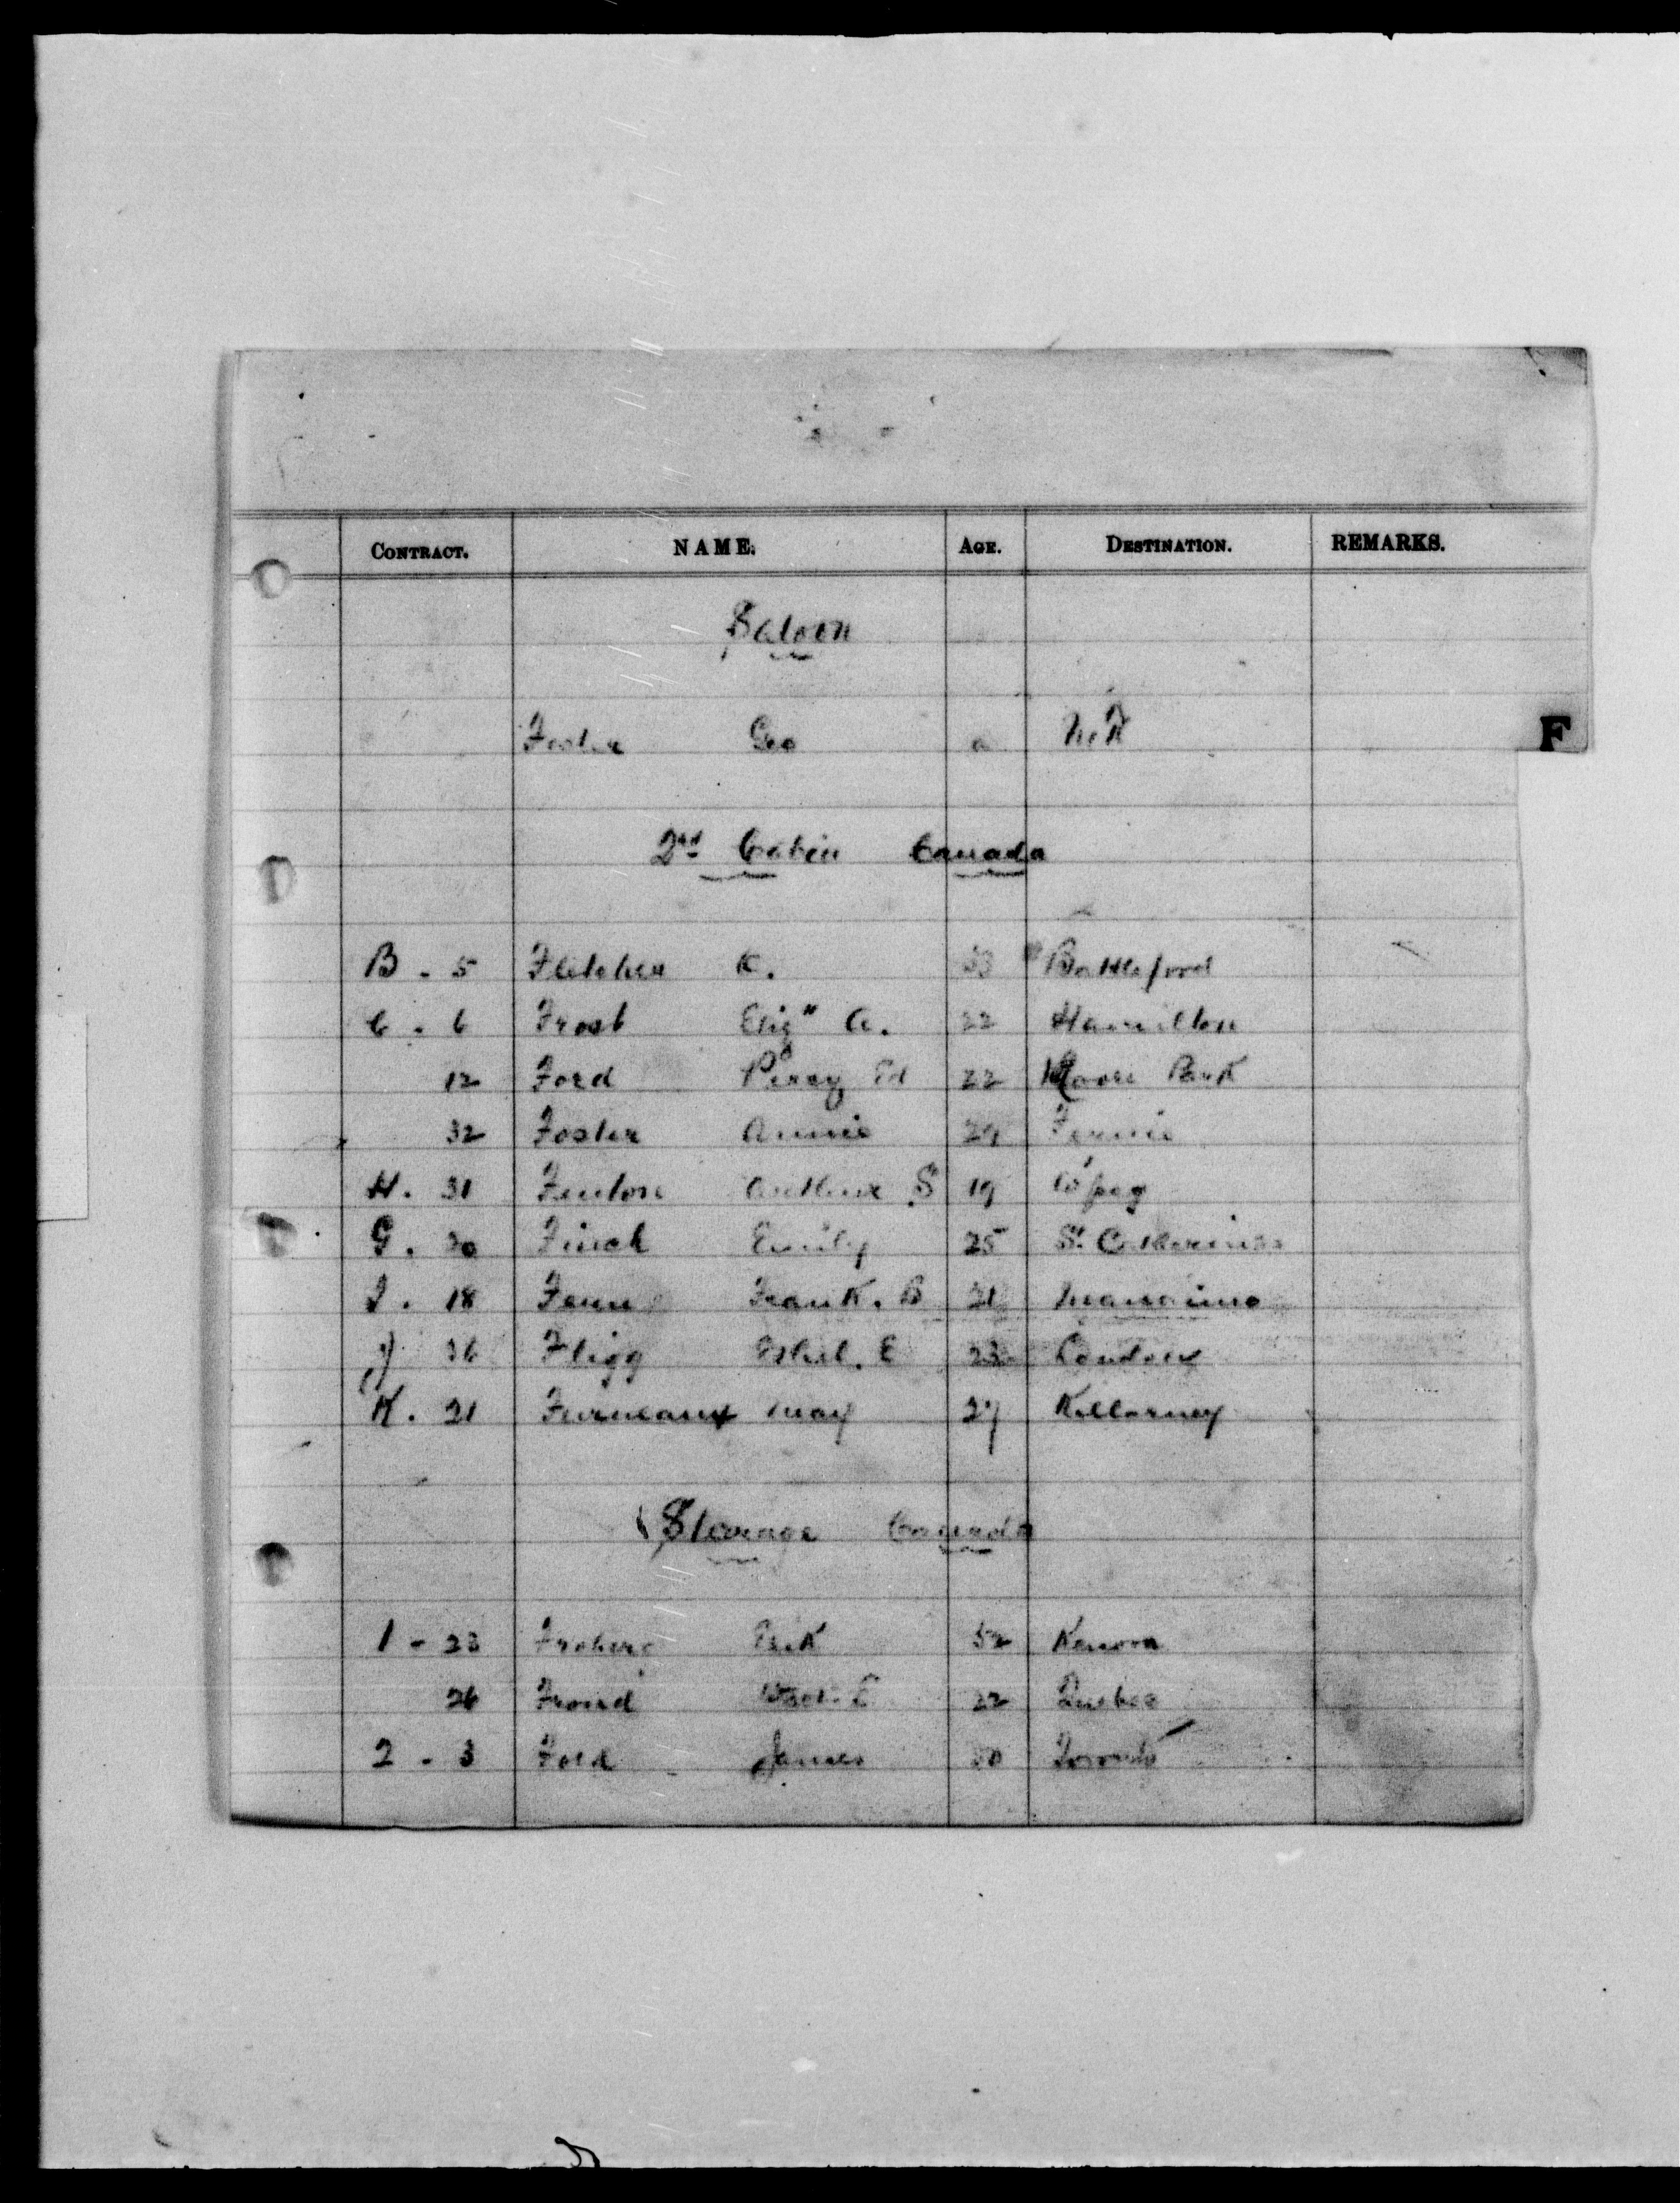 CONTRACT. NAME. AGE. DESTINATION. REMARKS.
Saloon
Foster Geo a
F
2nd Cabin Canada
B - 5 Fletcher K. 33 Battleford
C - 6 Frost Eliz" A. 22 Hamilton
12 Ford Percy Ed 22 Moore Park
32 Foster Annie 29 Fernie
H. 31 Fenton Arthur S 19 W'peg
G. 20 Finch Emily 25 St. Catherines
I. 18 Fenn Frank. B 21 Nanaimo
J 36 Fligg Ethel. E 23 London
K. 21 Furneaux May 27 Killarney
Steerage Canada
1 - 23 Froberg Erik 52 Kenora
26 Froud 22 Quebec
2 - 3 Ford James Toronto